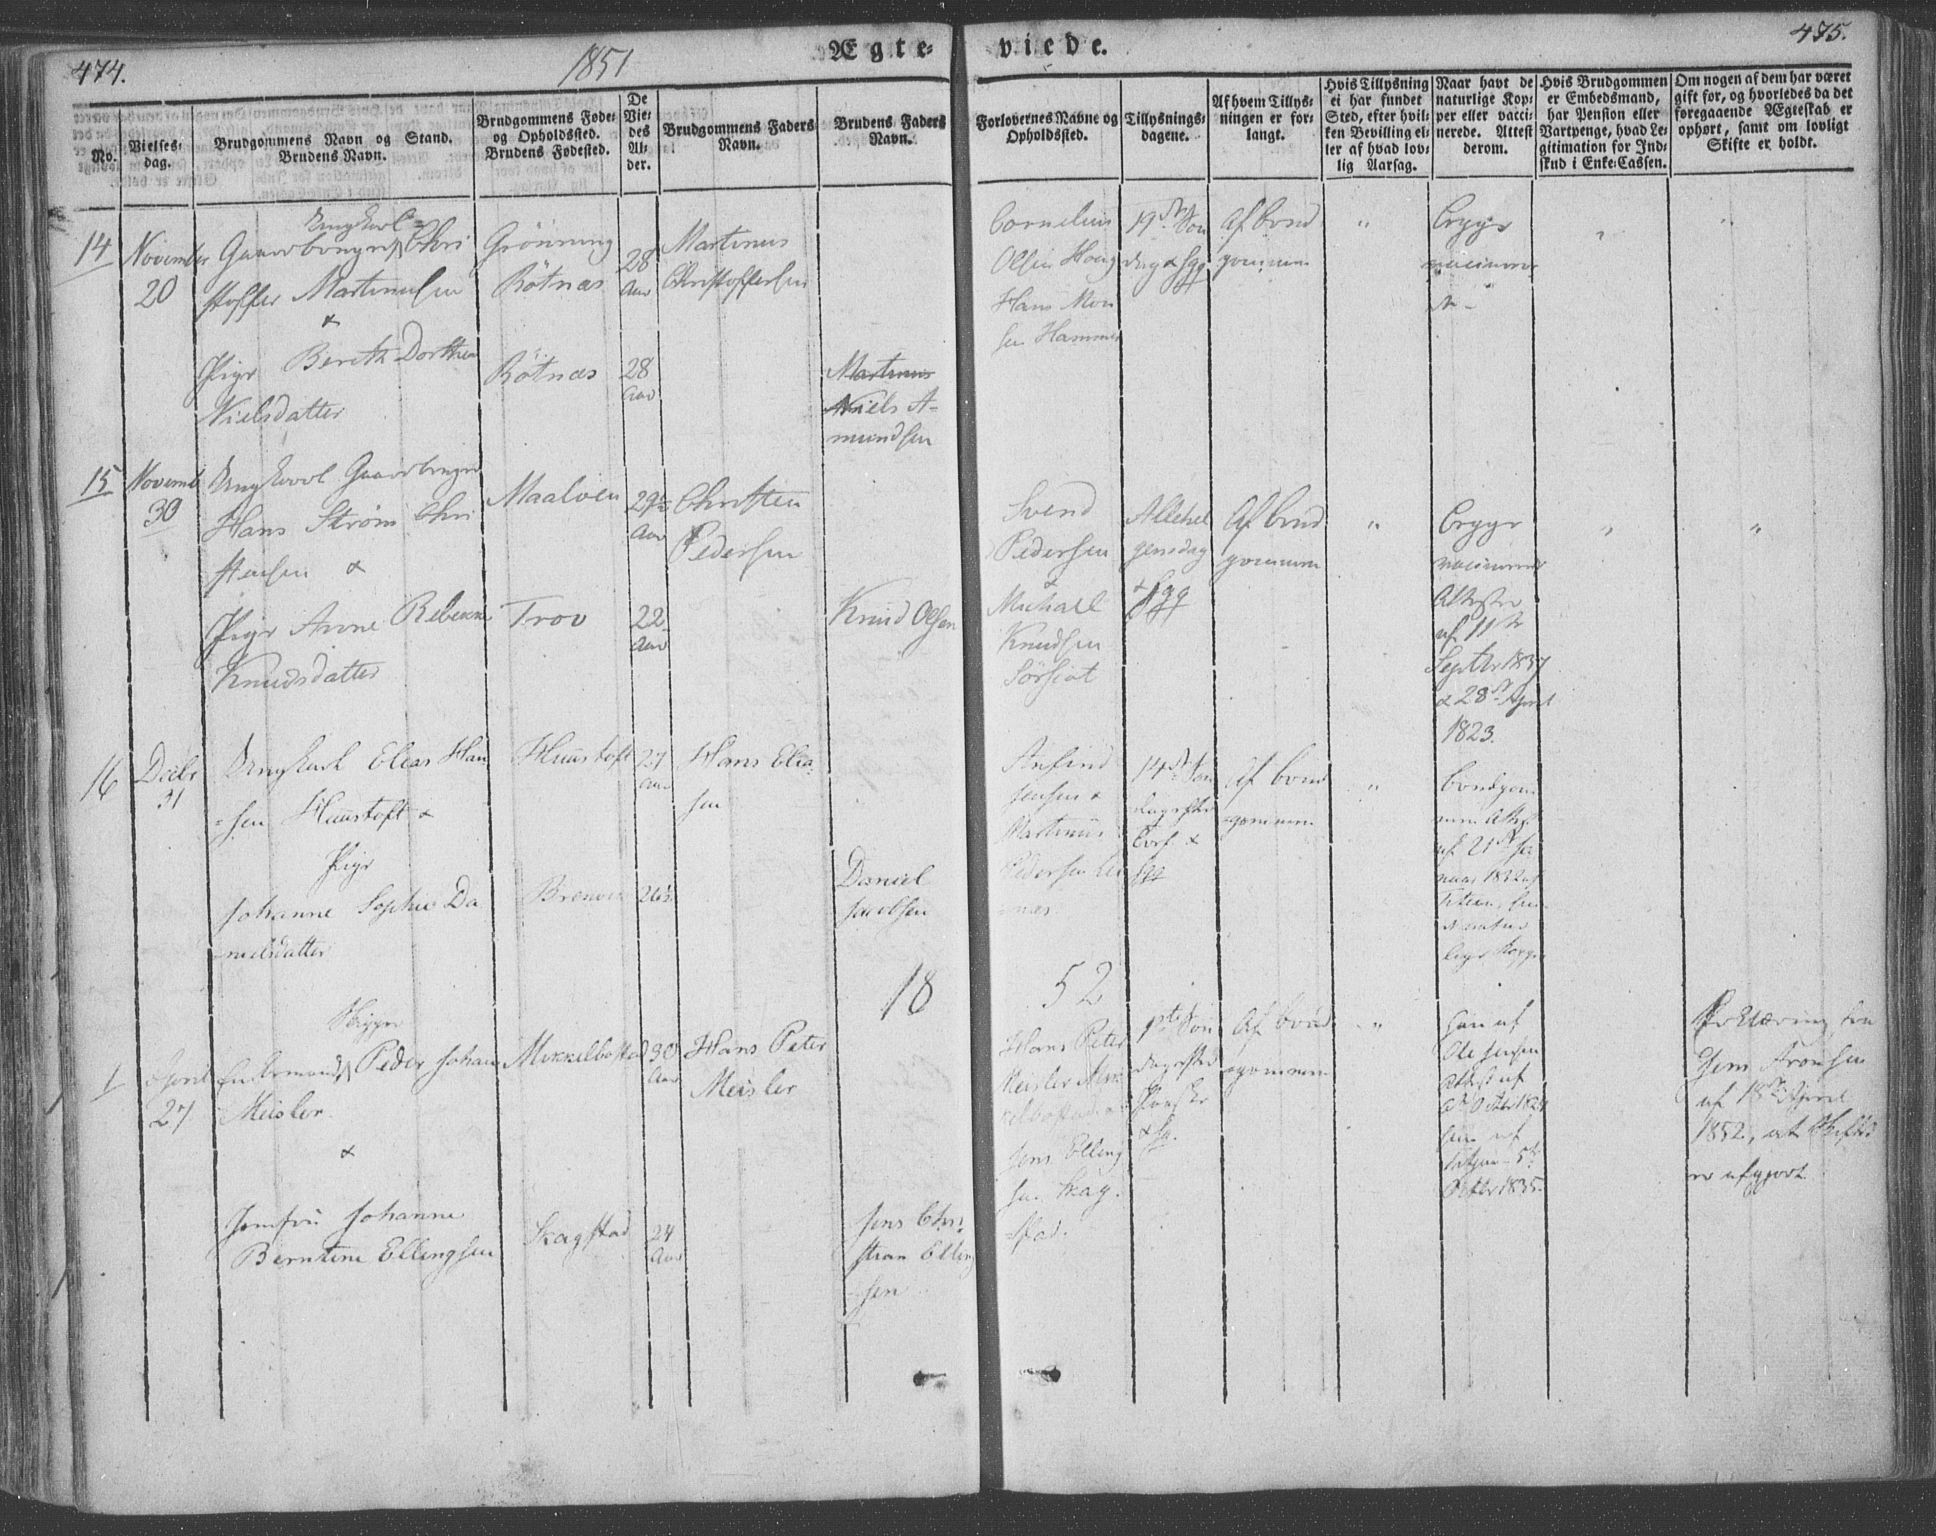 474.
1851
Ægte-
viede.
475.
No.
Vielses-
dag.
Brudgommens Navn og Stand.
Brudens Navn.
Brudgommens Føde-
og Opholdssted.
Brudens Fødested.
De
Vie-
des
Al-
der.
Brudgommens Faders
Navn.
Brudens Faders
Navn.
Forlovernes Navne og
Opholdssted.
Tillysnings-
dagene.
Af hvem Tillys-
ningen er for-
langt.
Hvis Tillysning
ei har fundet
Sted, efter hvil-
ken Bevilling el-
ler af hvad lov-
lig Aarsag.
Naar havt de
naturlige Kop-
per eller vacci-
nerede. Attest
derom.
Hvis Brudgommen
er Embedsmand,
har Pension eller
Vartpenge, hvad Le-
gitimation for Ind-
skud i Enke-Cassen.
Om nogen af dem har været
gift før, og hvorledes da det
foregaaende Ægteskab er
ophørt, samt om lovligt
Skifte er holdt.
14
November
20
Ungkarl
Chri
stoffer Martinusen
&
Pige Bereth Dorthea
Nielsdatter
Grönning
Rötnæs
Rötnæs
28
Aar
28
Aar
Martinus
Christoffersen
Martinus
Niels A-
mundsen
Cornelius
Olsen Houg
Hans Mon
sen Hammer
19de Søn
dag & fgg
Af brud
gommen
"
Begge
vaccinere
de -
"
15
Novemb
30
Ungkarl Gaardbruger
Hans Strøm Chri
stensen &
Pige Anne Rebekka
Knudsdatter
Maalöen
Trov
29½
Aar
22
Aar
Christen
Pedersen
Knud Olsen
Svend
Pedersen
&
Michael
Knudsen
Allehel
gensdag
& fgg
Af brud
gommen
"
Begge
vaccinerede
Attester
af 11te
Septbr 1837
& 28de April
1823.
"
"
16
Decbr
31
Ungkarl Elias Han
sen Huustoft &
Pige
Johanne Sophie Da
nielsdatter
Huustoft
27
Aar
26½
Hans Elia
sen
Daniel
Jacobsen
Anfind
Jensen &
Martinus
Pedersen
næs
14de Søn
dag efter
&
fgg
Af brud
gommen
"
Brudgom
men Attest
af 21de Ja
nuar 1832 af
18
52
1
April
27
Enkemand Peder Johan
Meisler
&
Jomfru Johanne
Berntine Ellingsen
Mikkelbostad
Skagstad
30
Aar
24
Aar
Hans Peter
Meisler
Jens Chri
stian Elling
sen
Hans Peter
Meisler Mik
kelbostad &
Jens Elling
sen Skag
stad.
1ste Søn
dag efter
Paaske
& fg.
Af brud
gommen
"
han af
Ole Jensen
Attest af
hun af
5te
Octbr 1835.
Erklæring fra
Jens Fronsen
af 18de April
1852, at Skiftet
er afgjort